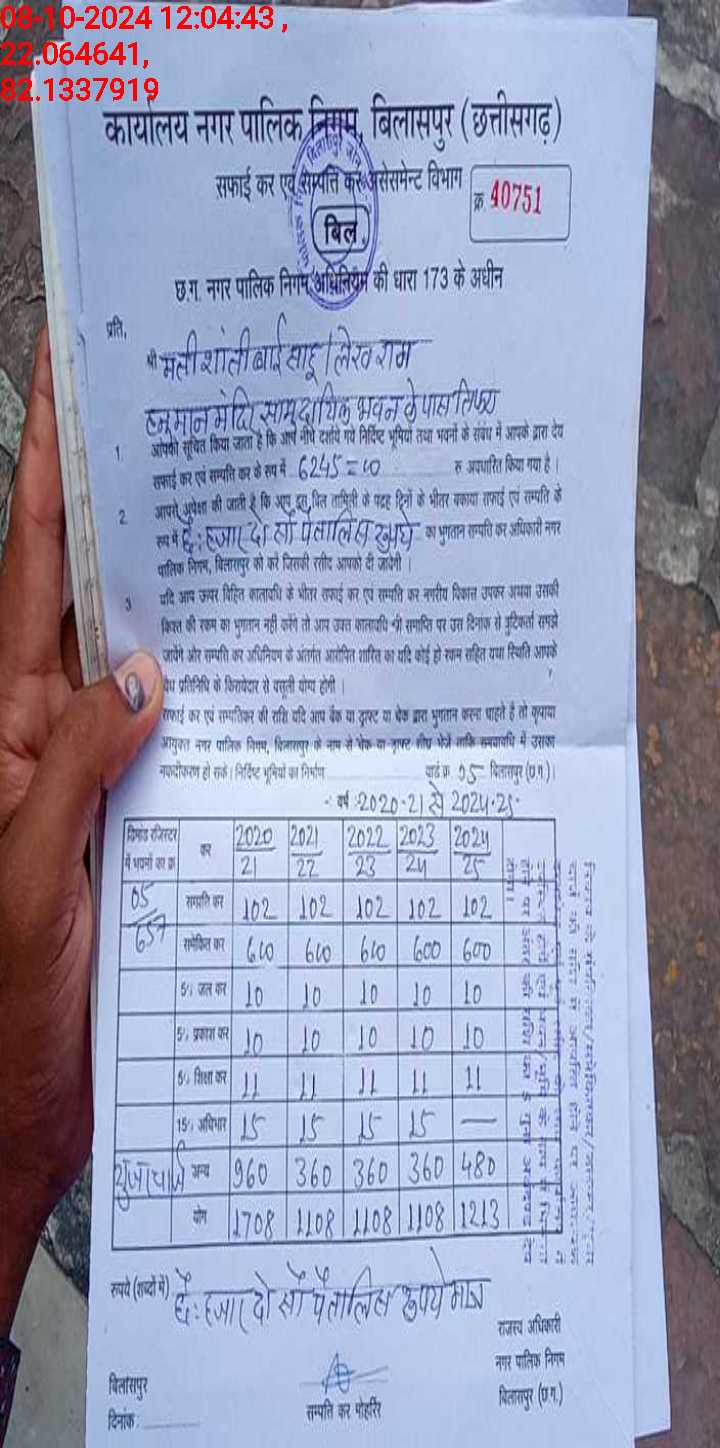 08-10-2024 12:04:43 ,
22.064641,
82.1337919
कार्यालय नगर पालिक निगम, बिलासपुर (छत्तीसगढ़)
सफाई कर एवं सम्पत्ति कर असेसमेन्ट विभाग
क्र. 40751
बिल
छ.ग. नगर पालिक निगम अधिनियम की धारा 173 के अधीन
प्रति,
श्री मती शांती बाई साहू / लेख राम
हनुमान मंदिर सामुदायिक भवन के पास तिफरा
1. आपको सूचित किया जाता है कि आप नीचे दर्शाये गये निर्दिष्ट भूमियो तथा भवनों के संबंध में आपके द्वारा देय
सफाई कर एवं सम्पत्ति कर के रूप में 6245=00 रु अवधारित किया गया है।
2 आपसे अपेक्षा की जाती है कि आप इस बिल तामिली के पंद्रह दिनों के भीतर बकाया सफाई एवं सम्पति के
रूप में छै: हजार दो सौ पैंतालिस रूपये का भुगतान सम्पत्ति कर अधिकारी नगर
पालिक निगम, बिलासपुर को करें जिसकी रसीद आपको दी जावेगी।
3 यदि आप ऊपर विहित कालावधि के भीतर सफाई कर एवं सम्पत्ति कर नगरीय विकास उपकर अथवा उसकी
किश्त की रकम का भुगतान नही करेंगे तो आप उक्त कालावधि की समाप्ति पर उस दिनांक से त्रुटिकर्ता समझे
जावेंगे ओर सम्पति कर अधिनियम के अंतर्गत आरोपित शास्ति का यदि कोई हो रकम सहित यथा स्थिति आपके
प्रतिनिधि के किरायेदार से वसूली योग्य होगी।
सफाई कर एवं सम्पत्तिकर की राशि यदि आप बैंक या ड्राफ्ट या चेक द्वारा भुगतान करना चाहते है तो कृपया
आयुक्त नगर पालिक निगम, बिलासपुर के नाम से चेक या ड्राफ्ट शीघ्र भेजें ताकि समयावधि में उसका
नकदीकरण हो सके। निर्दिष्ट भूमियों का निर्माण वार्ड क्र 05 बिलासपुर (छ.ग.)।
वर्ष :2020-21 से 2024-25
डिमांड रजिस्टर में भवनों का क्र कर 2020/21 2021/22 2022/23 2023/24 2024/25
05/657 सम्पत्ति कर 102 102 102 102 102
समेकित कर 600 600 600 600 600
5% जल कर 10 10 10 10 10
5% प्रकाश कर 10 10 10 10 10
5% शिक्षा कर 11 11 11 11 11
15% अधिभार 15 15 15 15 —
यूजरचार्ज अन्य 960 360 360 360 480
योग 1708 1108 1108 1108 1213
रूपये (शब्दों में) छै: हजार दो सौ पैंतालिस रूपये मात्र
राजस्व अधिकारी
नगर पालिक निगम
बिलासपुर (छ.ग.)
बिलासपुर
दिनांक
सम्पति कर मोहर्रिर